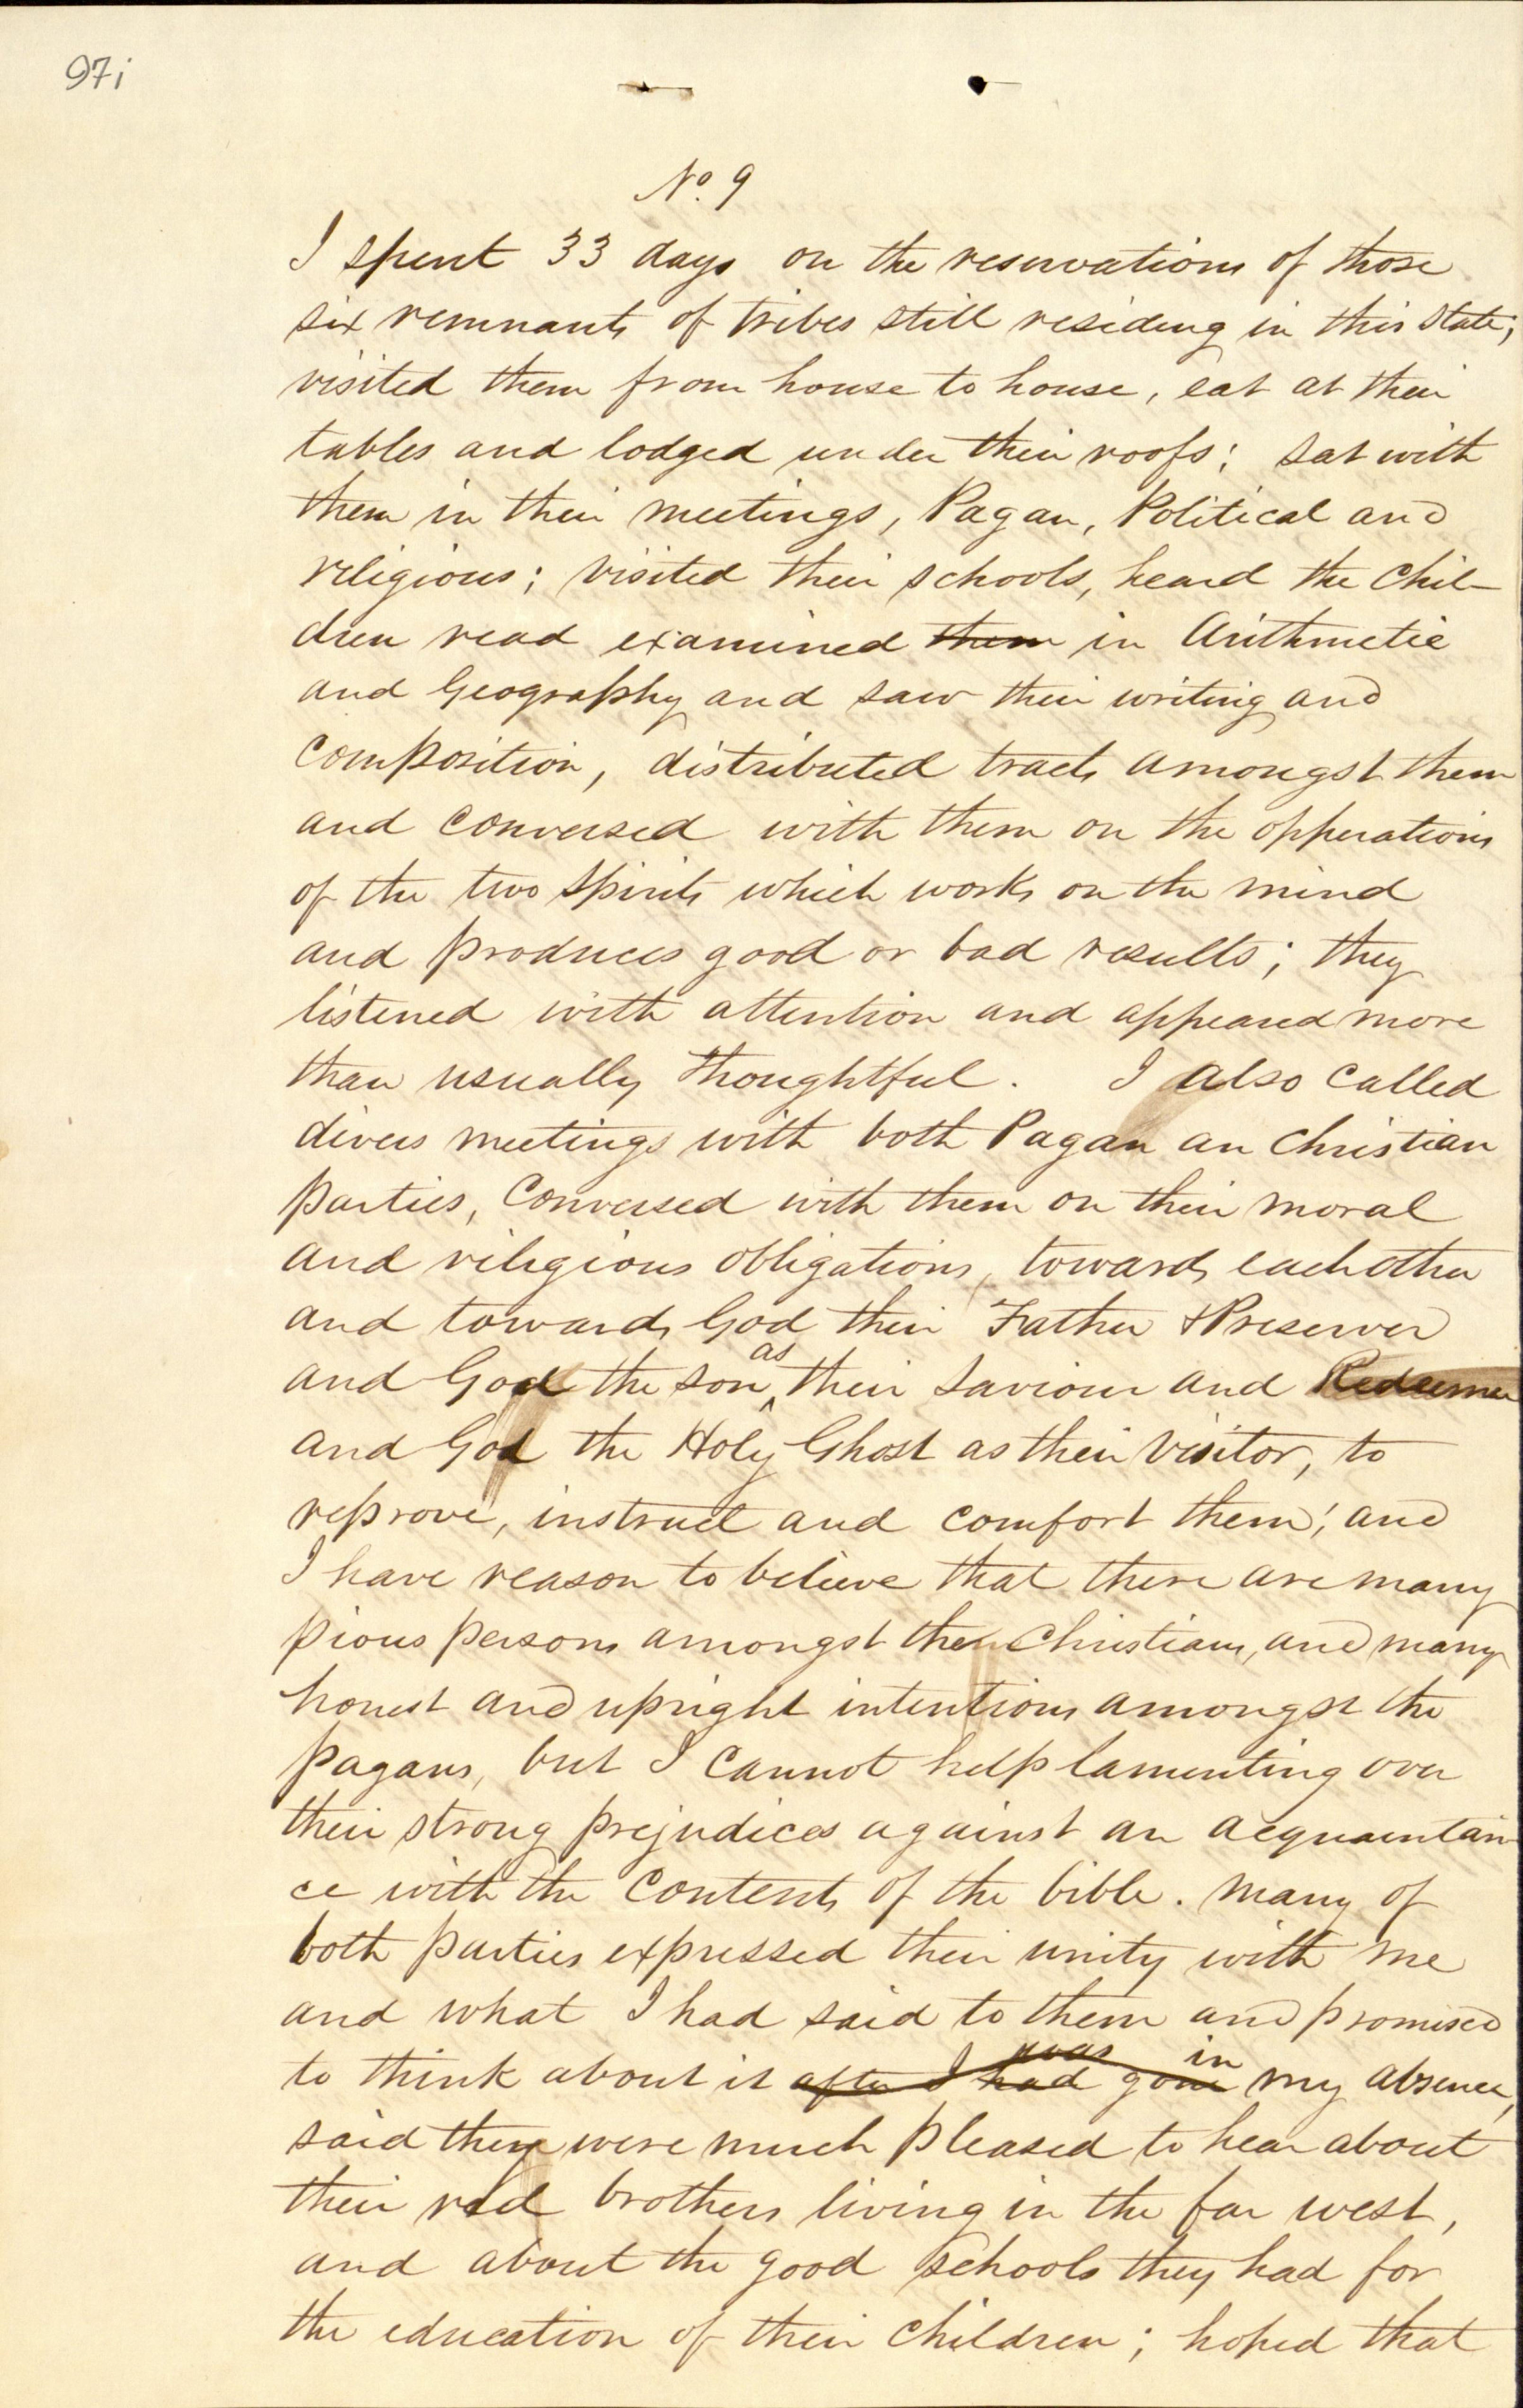 97i
No. 9
I spent 33 days on the reservations of those
six remnants of tribes still residing in this State;
visited them from house to house, eat at their
tables and lodged under their roofs; sat with
them in their meetings, Pagan, Political and
religious; visited their schools, heard the Chil-
dren read examined them in Arithmetic
and Geography and saw their writing and
composition, distributed tracts amongst them
and conversed with them on the opperations
of the two Spirits which works on the mind
and produces good or bad results; they
listened with attention and appeared more
than usually thoughtful. I also called
divers meetings with both Pagan an Christian
parties, Conversed with them on their moral
and riligious obligations, towards eachother
and towards God their Father & Preserver
and God the son as their Saviour and Redeemer
and God the Holy Ghost as their visitor, to
reprove, instruct and comfort them; and
I have reason to believe that there are many
pious persons amongst the Christians, and many
honest and upright intentions amongst the
pagans, but I cannot help lamenting over
their strong prejudices against an acquaintan
ce with the Contents of the bible. many of
both parties expressed their unity with me
and what I had said to them and promised
to think about it after I had was gone in my absence,
said they were much pleased to hear about
their red brothers living in the far west,
and about the good schools they had for
the education of their children; hoped that